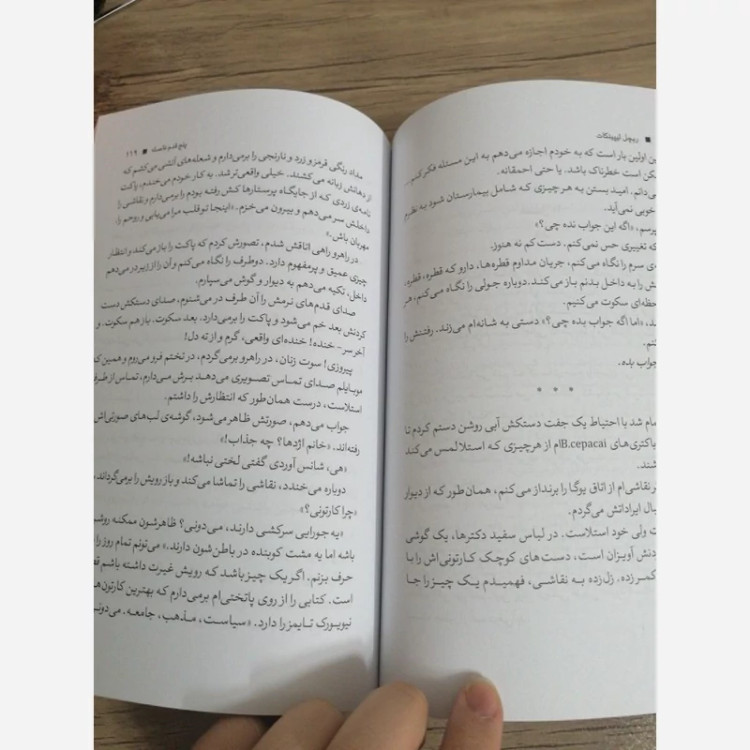 ■ ریچل لیپینکات
ین اولین بار است که به خودم اجازه می‌دهم به این مسئله فکر کنم...
کن است خطرناک باشد. یا حتی احمقانه.
ی‌دانم. امید بستن به هر چیزی که شامل بیمارستان شود به نظرم
خوبی نمی‌آید.
پرسم، «اگه این جواب نده چی؟»
که تغییری حس نمی‌کنم. دست کم نه هنوز.
ی سرم را نگاه می‌کنم، جریان مداوم قطره‌ها، دارو که قطره، قطره،
ش را به داخل بدنم باز می‌کند. دوباره جولی را نگاه می‌کنم، هر
حظه‌ای سکوت می‌کنیم.
د، «اما اگه جواب بده چی؟» دستی به شانه‌ام می‌زند. رفتنش را
کنم.
جواب بده.
* * *
مام شد با احتیاط یک جفت دستکش آبی روشن دستم کردم تا
باکتری‌های B.cepacia‌ام از هرچیزی که استلا لمس می‌کند
شند.
ر نقاشی‌ام از اتاق یوگا را برنداز می‌کنم، همان طور که از دیوار
بال ایراداتش می‌گردم.
ت ولی خود استلاست. در لباس سفید دکترها، یک گوشی
دنش آویزان است، دست‌های کوچک کارتونی‌اش را با
کمر زده. زل‌زده به نقاشی، فهمیدم یک چیز را جا
پنج قدم فاصله ■ ۱۱۹
مداد رنگی قرمز و زرد و نارنجی را برمی‌دارم و شعله‌های آتشی می‌کشم که
از دهانش زبانه می‌کشند. خیلی واقعی‌تر شد. به کار خودم می‌خندم، پاکت
نامه‌ی زردی که از جایگاه پرستارها کش رفته بودم را برمی‌دارم و نقاشی را
داخلش سر می‌دهم و بیرون می‌خزم. «اینجا تو قلب مرا می‌یابی و روحم را،
مهربان باش.»
در راهرو راهی اتاقش شدم، تصورش کردم که پاکت را باز می‌کند و انتظار
چیزی عمیق و پرمفهوم دارد. دوطرف را نگاه می‌کنم و آن را از زیر در می‌دهم
داخل، تکیه می‌دهم به دیوار و گوش می‌سپارم.
صدای قدم‌های نرمش را آن طرف در می‌شنوم، صدای دستکش دست
کردنش بعد خم می‌شود و پاکت را برمی‌دارد. بعد سکوت. باز هم سکوت. و
آخر سر - خنده! خنده‌ای واقعی، گرم و از ته دل!
پیروزی! سوت زنان، در راهرو برمی‌گردم، در تختم فرو می‌روم و همین که
موبایلم صدای تماس تصویری می‌دهد برش می‌دارم، تماس از طرف
استلاست، درست همان‌طور که انتظارش را داشتم.
جواب می‌دهم، صورتش ظاهر می‌شود، گوشه‌ی لب‌های صورتی‌اش
رفته‌اند. «خانم اژدها؟ چه جذاب!»
«هی، شانس آوردی گفتی لختی نباشه!»
دوباره می‌خندد، نقاشی را تماشا می‌کند و باز رویش را برمی‌گرداند،
«چرا کارتونی؟»
«یه جورایی سرکشی دارند، می‌دونی؟ ظاهرشون ممکنه روشن
باشه اما یه مشت کوبنده در باطن‌شون دارند.» می‌تونم تمام روز را
حرف بزنم. اگر یک چیز باشد که رویش غیرت داشته باشم
است. کتابی را از روی پاتختی‌ام برمی‌دارم که بهترین کارتون‌های
نیویورک تایمز را دارد. «سیاست، مذهب، جامعه. می‌دونی